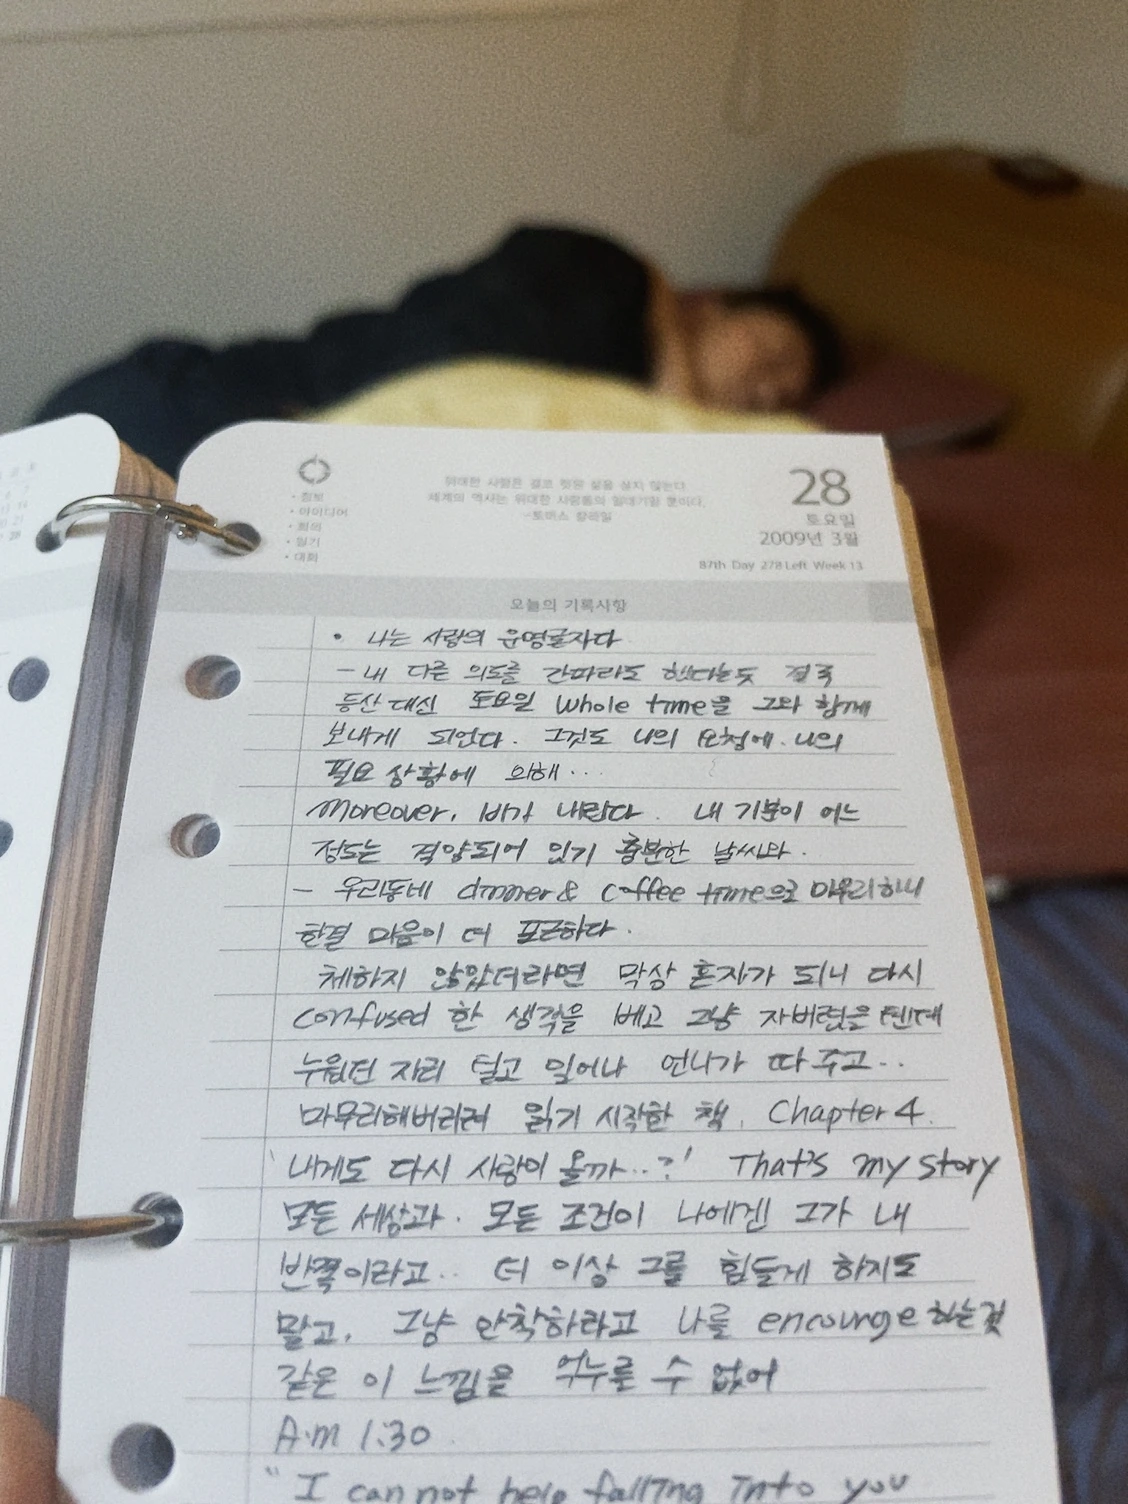 위대한 사람은 결코 헛된 삶을 살지 않는다.
세계의 역사는 위대한 사람들의 일대기일 뿐이다.
-토마스 칼라일
• 정보
• 아이디어
• 회의
• 일기
• 대화
28
토요일
2009년 3월
87th Day 278 Left Week 13
오늘의 기록사항
• 나는 사랑의 운명론자다
- 내 다른 의도를 간파라도 했다는듯 결국
등산 대신 토요일 whole time을 그와 함께
보내게 되었다. 그것도 나의 요청에. 나의
필요 상황에 의해...
Moreover, 비가 내렸다. 내 기분이 어느
정도는 격양되어 있기 충분한 날씨와.
- 우리동네 dinner & coffee time으로 마무리하니
한결 마음이 더 포근하다.
체하지 않았더라면 막상 혼자가 되니 다시
confused 한 생각을 베고 그냥 자버렸을 텐데
누웠던 자리 털고 일어나 언니가 따 주고..
마무리해버리려 읽기 시작한 책. Chapter 4.
'내게도 다시 사랑이 올까..?' That's my story
모든 세상과. 모든 조건이 나에겐 그가 내
반쪽이라고.. 더 이상 그를 힘들게 하지도
말고, 그냥 안착하라고 나를 encourge 하는것
같은 이 느낌을 억누를 수 없어
A.m 1:30
" I can not help falling into you